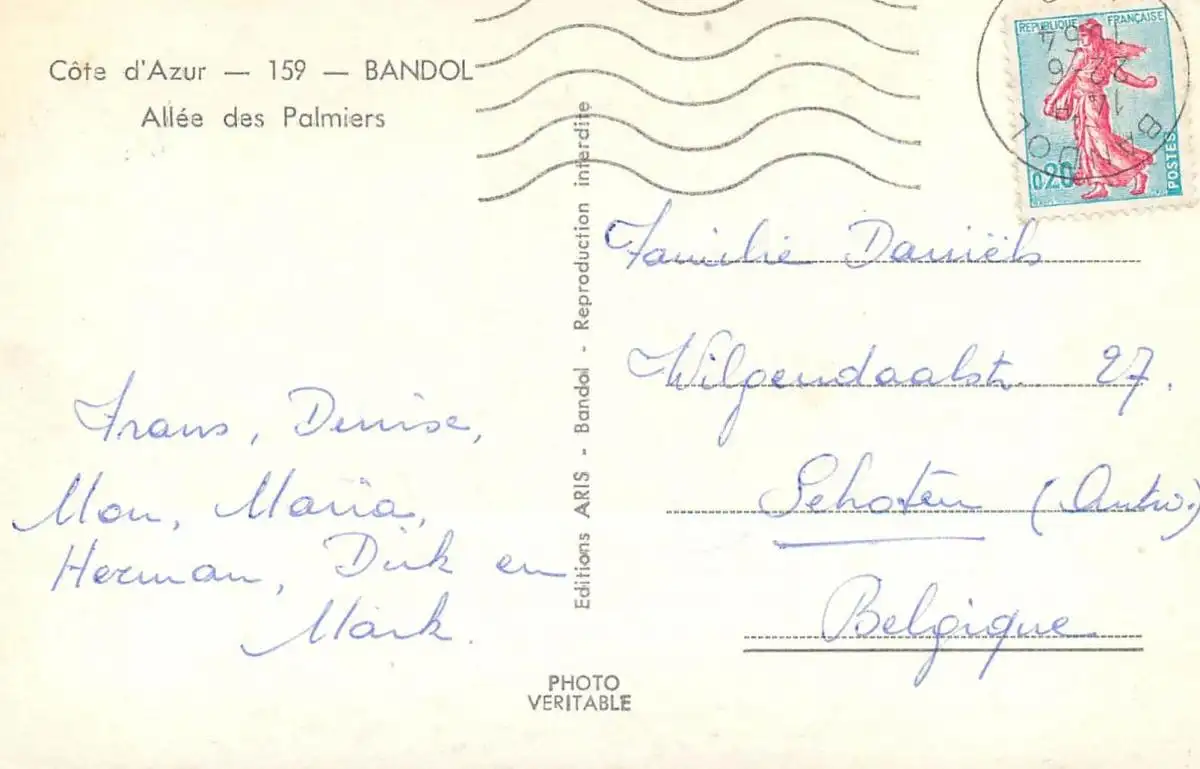 Côte d'Azur — 159 — BANDOL
Allée des Palmiers
Frans, Denise,
Mon, Maria,
Herman, Dirk en
Mark.
Editions ARIS - Bandol - Reproduction interdite
PHOTO
VERITABLE
REPUBLIQUE FRANÇAISE
0,20
POSTES
BANDOL
Familie Daniëls
Wilgendaalstr. 27.
Schoten (Antw.)
Belgique